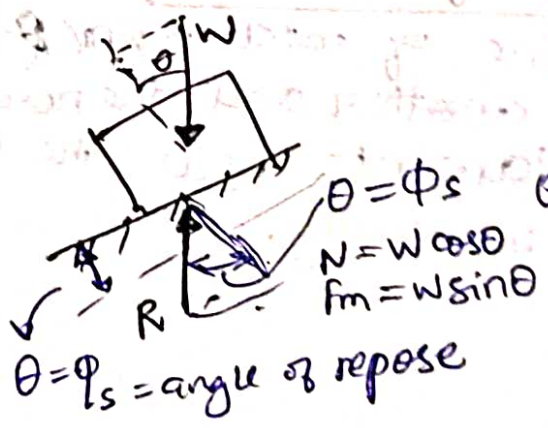 W
θ
θ = Φs
N = W cosθ
Fm = W sinθ
R
θ = φs = angle of repose